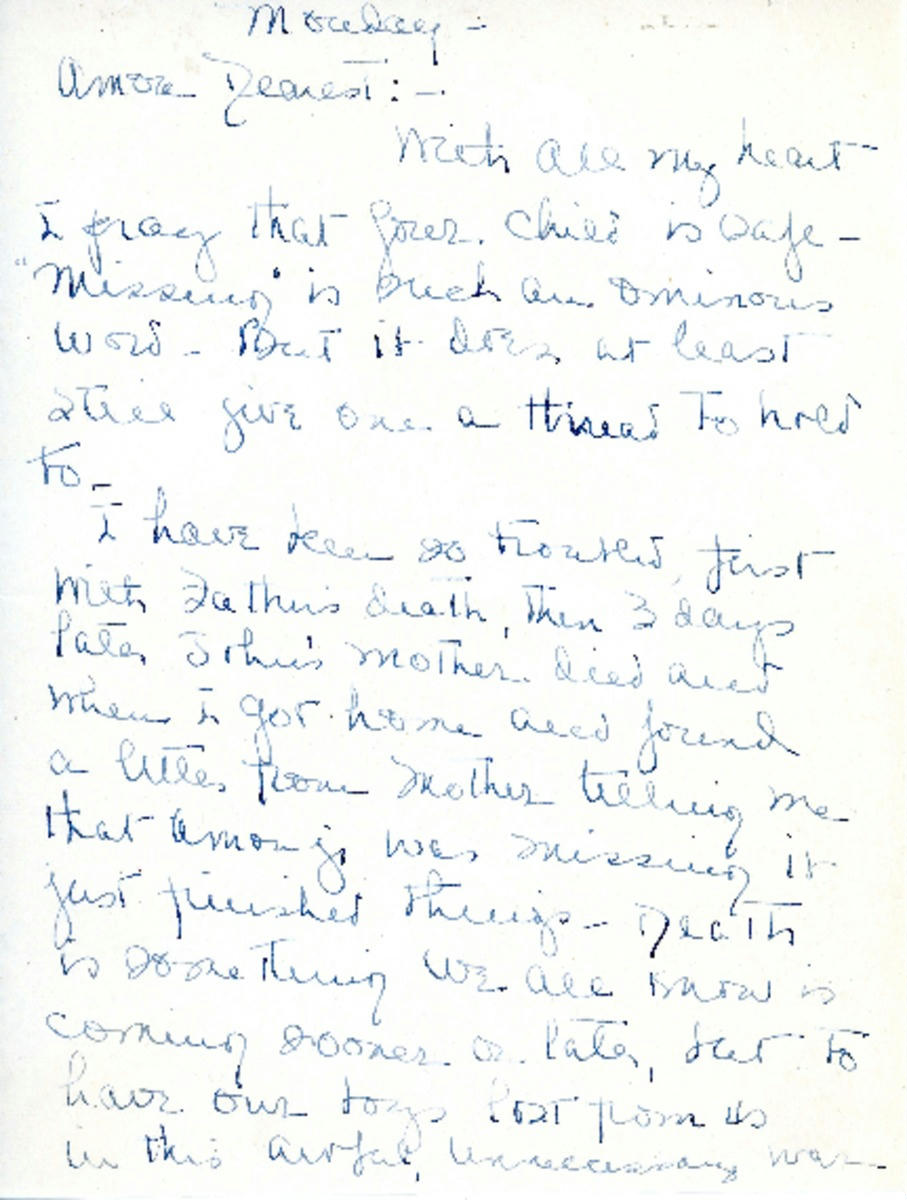 Monday -
Amon Dearest: -
With all my heart -
I pray that your child is safe -
"Missing" is such an ominous
word - But it does at least
still give one a thread to hold
to -
I have been so troubled, first
with Father's death, then 3 days
later John's mother died and
when I got home and found
a letter from Mother telling me
that Amon Jr. was missing it
just finished things - Death
is something we all know is
coming sooner or later, but to
have our boys lost from us
in this awful, unnecessary war -